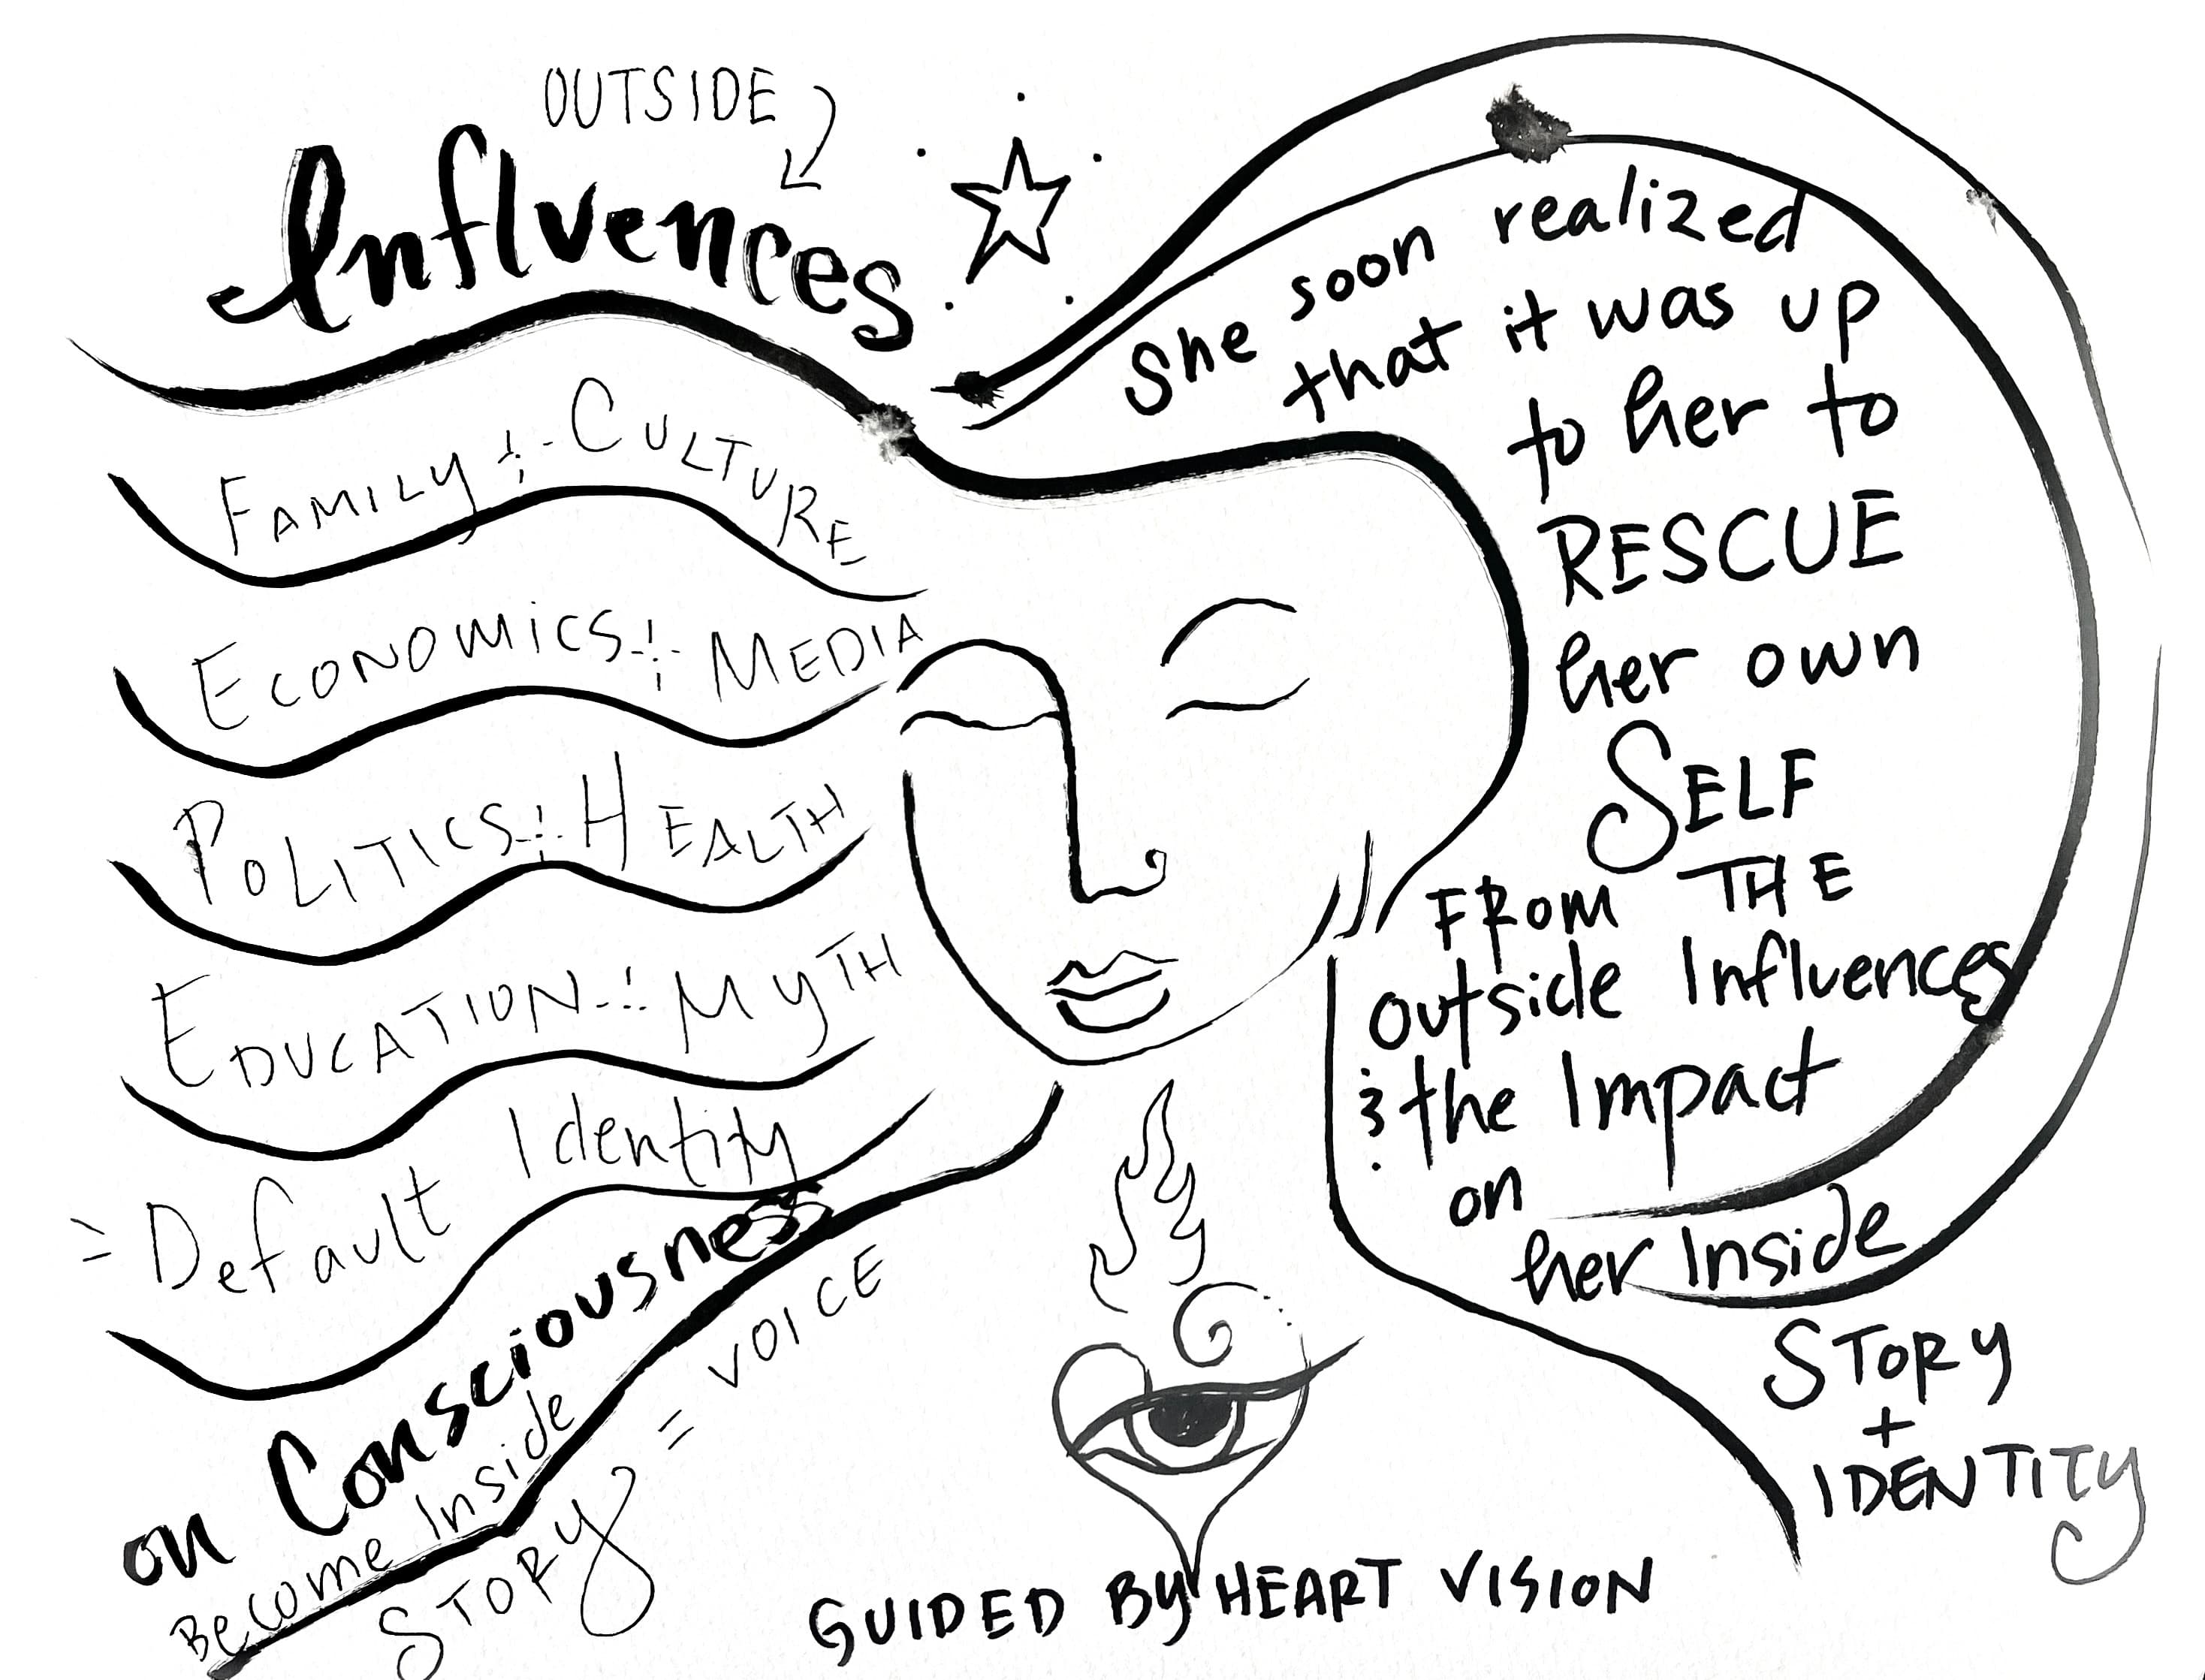 OUTSIDE
Influences
FAMILY + CULTURE
ECONOMICS + MEDIA
POLITICS + HEALTH
EDUCATION + MYTH
Default Identity
on Consciousness
Become Inside
STORY = VOICE
She soon realized
that it was up
to her to
RESCUE
her own
SELF
FROM THE
outside Influences
& the Impact
on
her Inside
STORY
+
IDENTITY
GUIDED BY HEART VISION